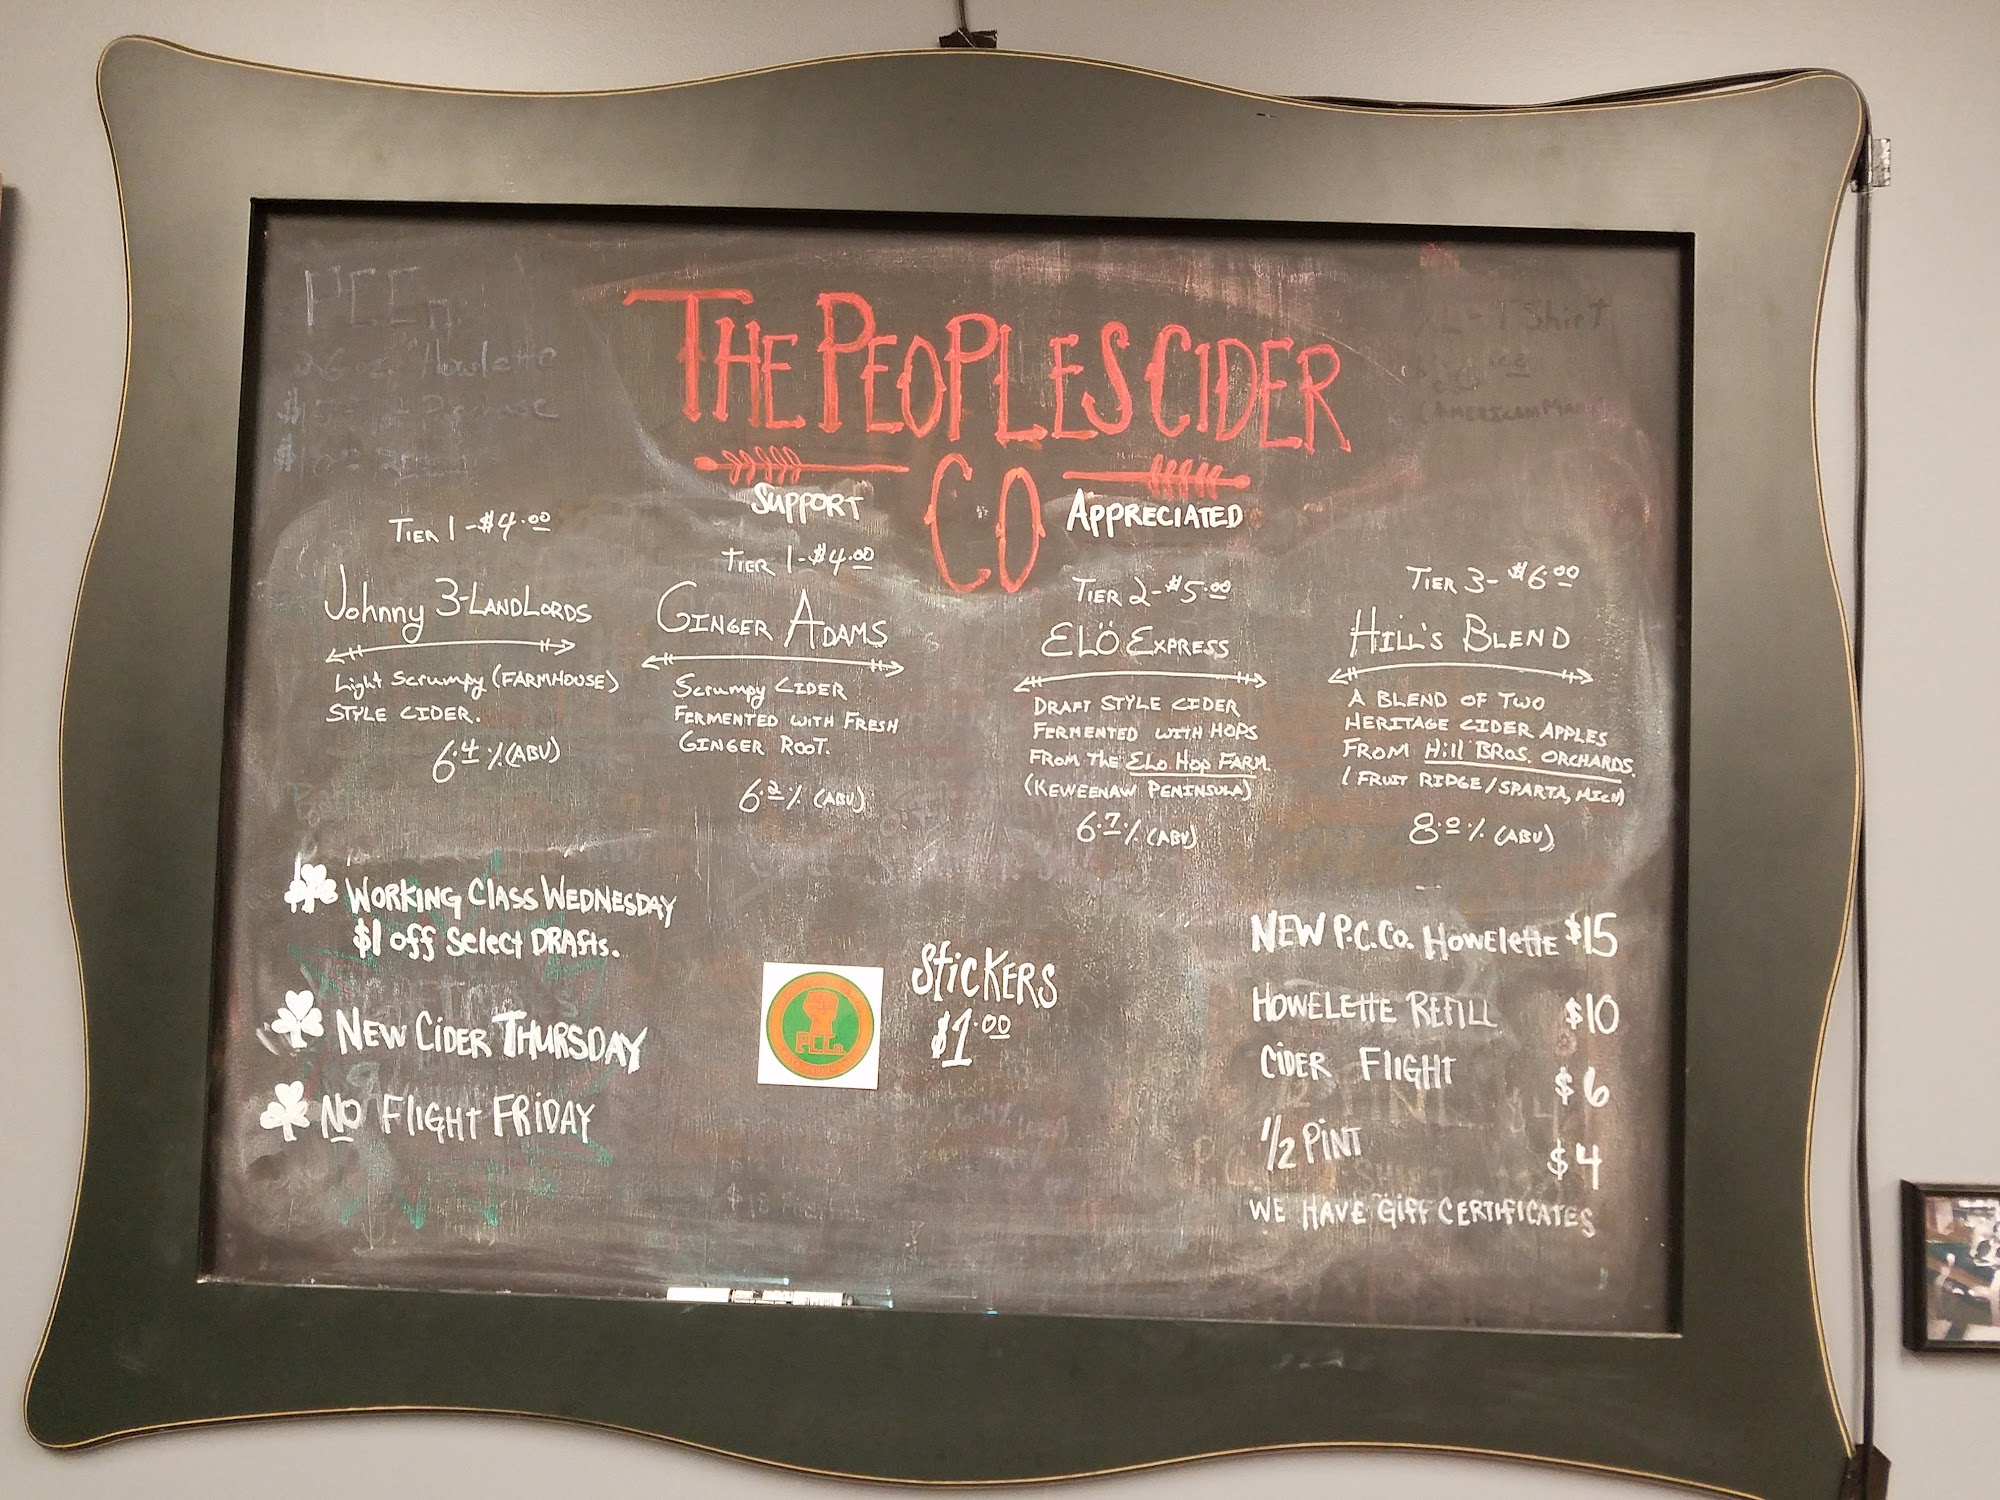 THE PEOPLES CIDER
CO
SUPPORT
APPRECIATED
TIER 1-$4.00
Johnny 3-LANDLORDS
Light Scrumpy (FARMHOUSE)
STYLE CIDER.
6.4% (ABV)
TIER 1-$4.00
GINGER ADAMS
Scrumpy CIDER
FERMENTED WITH FRESH
GINGER ROOT.
6.2% (ABV)
TIER 2-$5.00
ELÖ EXPRESS
DRAFT STYLE CIDER
FERMENTED WITH HOPS
FROM THE ELO HOP FARM
(KEWEENAW PENINSULA)
6.7% (ABV)
TIER 3-$6.00
HILL'S BLEND
A BLEND OF TWO
HERITAGE CIDER APPLES
FROM Hill BROS. ORCHARDS.
(FRUIT RIDGE/SPARTA, MICH)
8.0% (ABV)
WORKING CLASS WEDNESDAY
$1 off Select DRAfts.
NEW CIDER THURSDAY
NO FLIGHT FRIDAY
PCCo
StiCKERS
$1.00
NEW P.C.Co. Howelette $15
HOWELETTE REFILL $10
CIDER FLIGHT $6
1/2 PINT $4
WE HAVE GIFT CERTIFICATES
PCCo
26 oz. Howlette
T Shirt